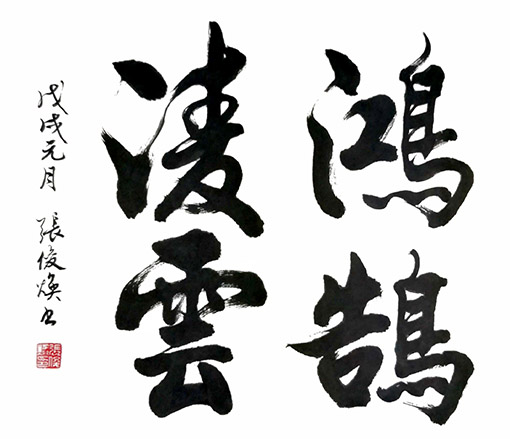 鴻鵠
凌雲
戊戌元月 張俊煥書